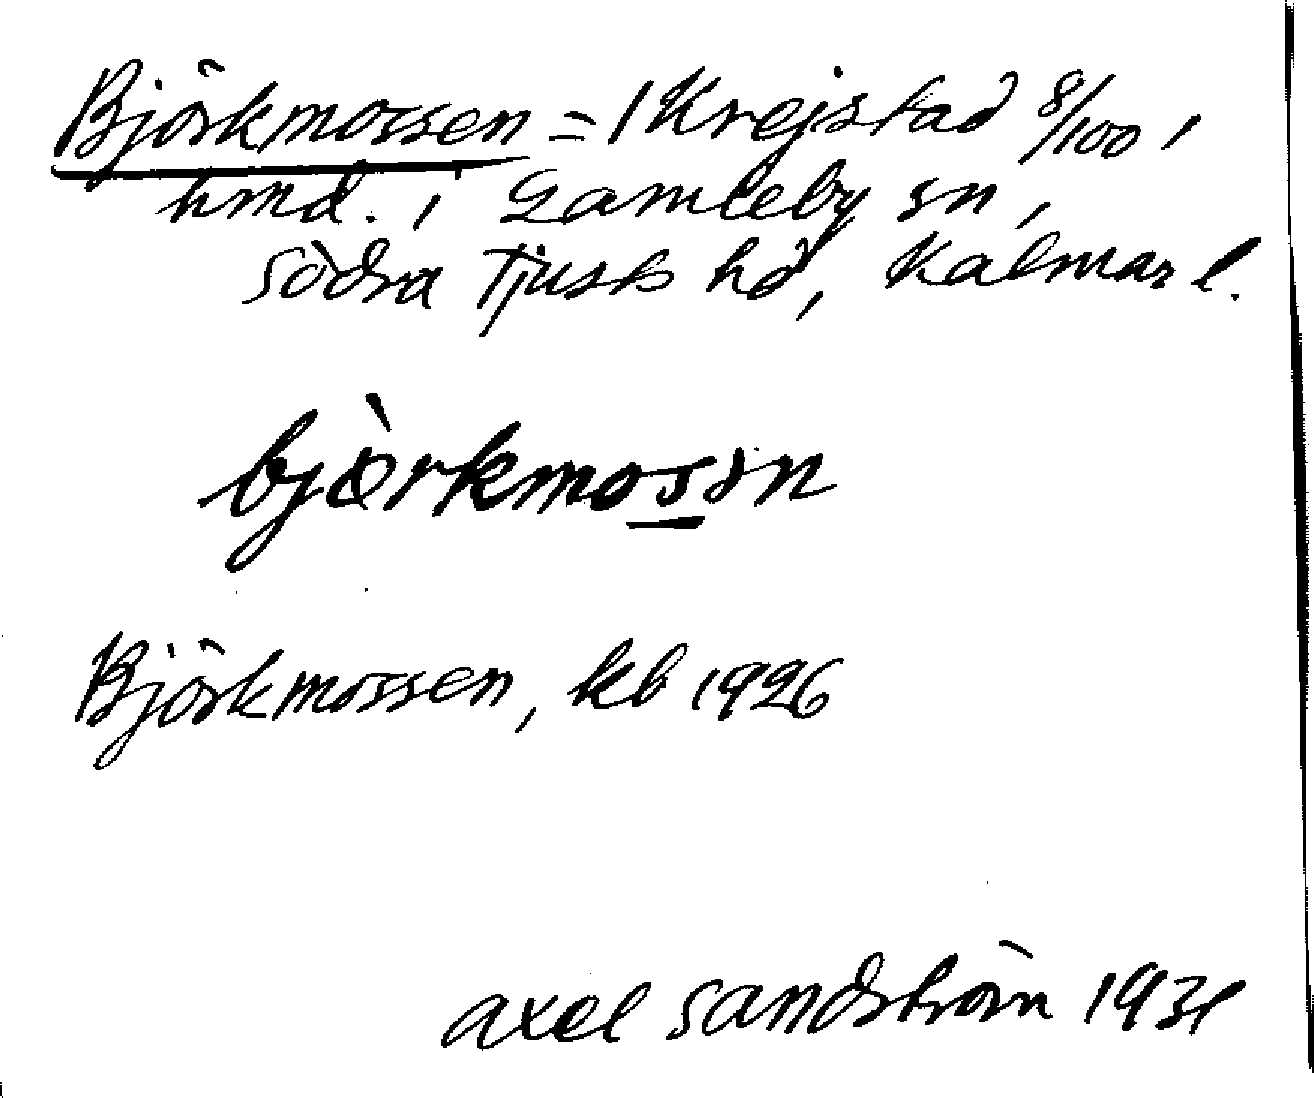 Björkmossen = 1 Krejstad 8/100,
hmd. i Gamleby sn,
Södra Tjusts hd, Kalmar l.
bjòrkmossn
Björkmossen, kb 1926
Axel Sandström 1931